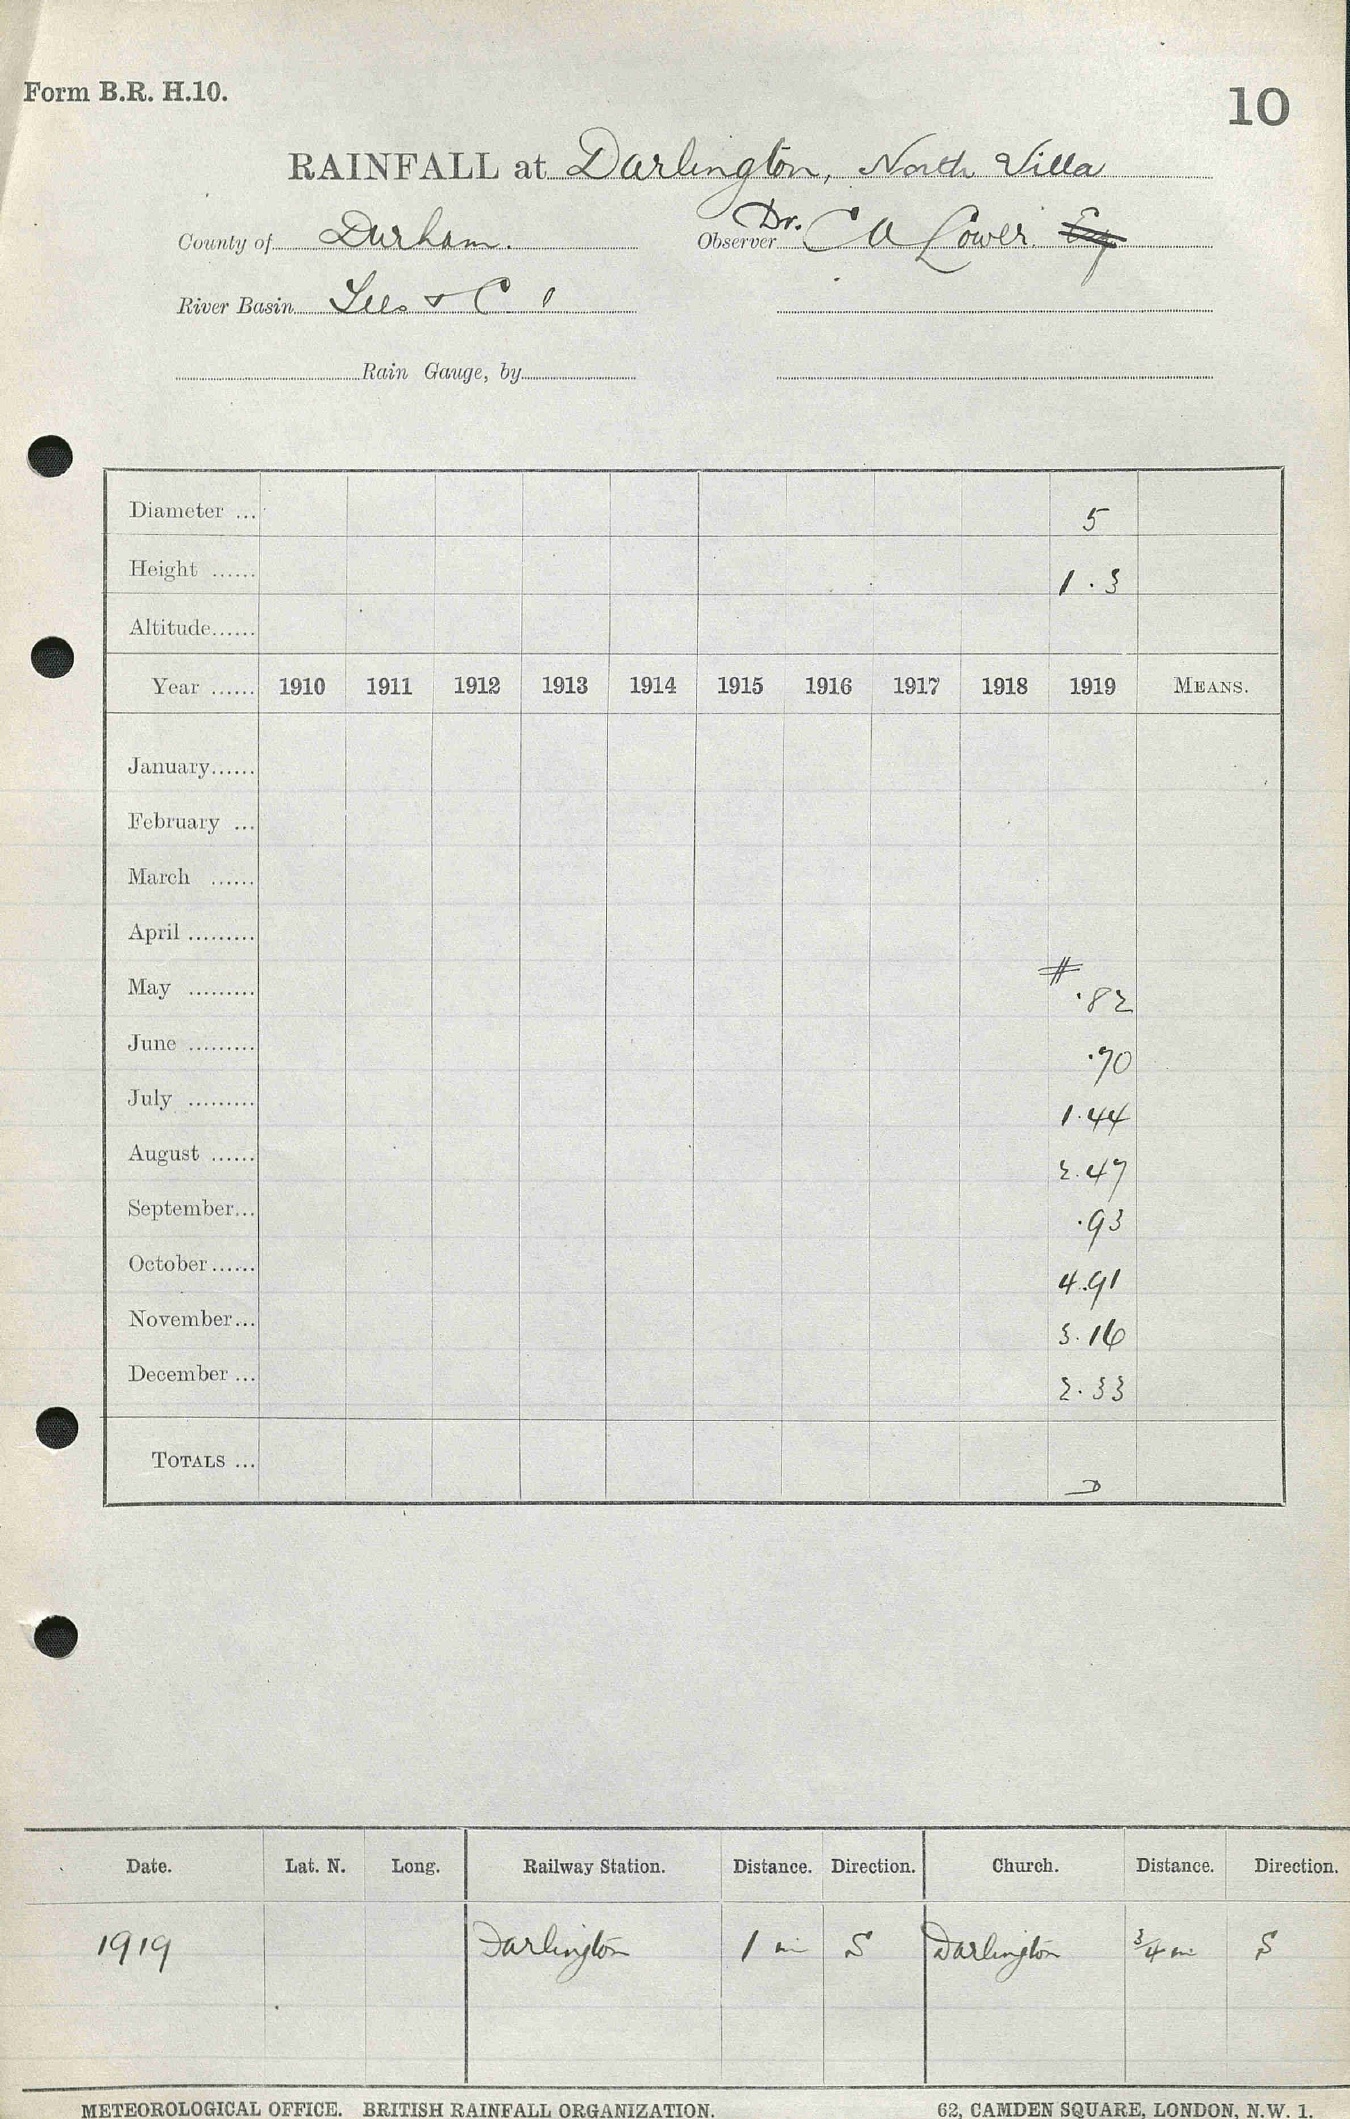 Form B.R. H.10.
10
RAINFALL at Darlington, North Villa
County of Durham.
Observer Dr. C A Lower
River Basin Tees & C
Rain Gauge, by
Diameter ... 5
Height ...... 1.3
Altitude......
Year ...... 1910 1911 1912 1913 1914 1915 1916 1917 1918 1919 MEANS.
January......
February ...
March ......
April .........
May ......... # .82
June ......... .70
July ......... 1.44
August ...... 2.47
September... .93
October...... 4.91
November... 3.16
December ... 2.33
TOTALS ...
Date. Lat. N. Long. Railway Station. Distance. Direction. Church. Distance. Direction.
1919 Darlington 1 m S Darlington 3/4 m S
METEOROLOGICAL OFFICE. BRITISH RAINFALL ORGANIZATION. 62, CAMDEN SQUARE, LONDON, N.W. 1.